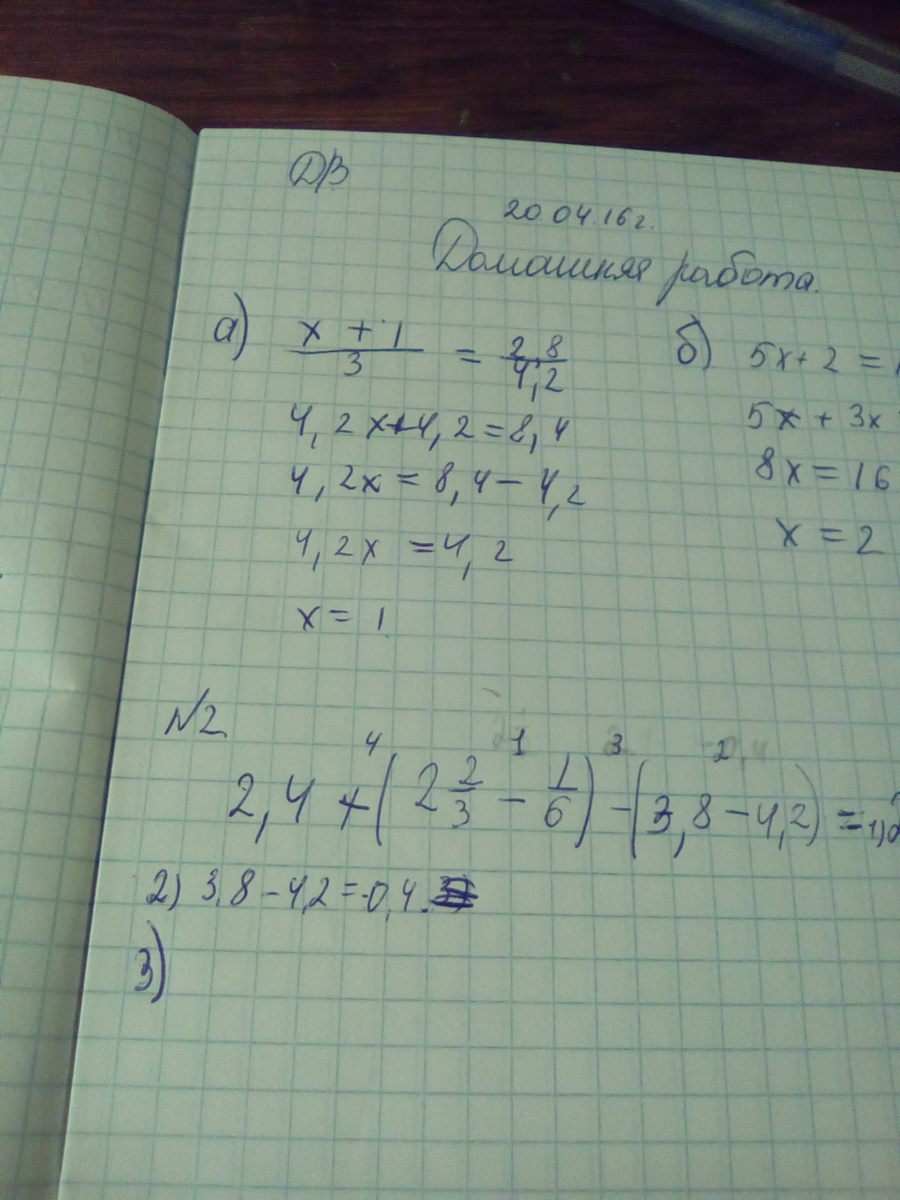 Д/В
20.04.16г.
Домашняя работа.
а) x + 1 / 3 = 2,8 / 4,2
4,2x+4,2=8,4
4,2x=8,4-4,2
4,2x=4,2
x=1
б) 5x+2=
5x+3x
8x=16
x=2
№2
4 1 3 2
2,4+(2 2/3 - 1/6)-(3,8-4,2)=
2) 3,8-4,2=-0,4.
3)